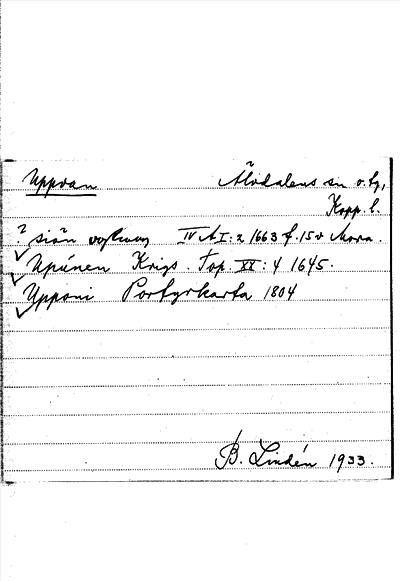 Uppvan Älvdalens sn o. tg,
Kopp. l.
? siön IV A I: 2 1663 f. 15v Mora.
Upúnen Krigs. Top. XX: 4 1645.
Ypponi Porfyrkarta 1804
B. Lindén 1933.